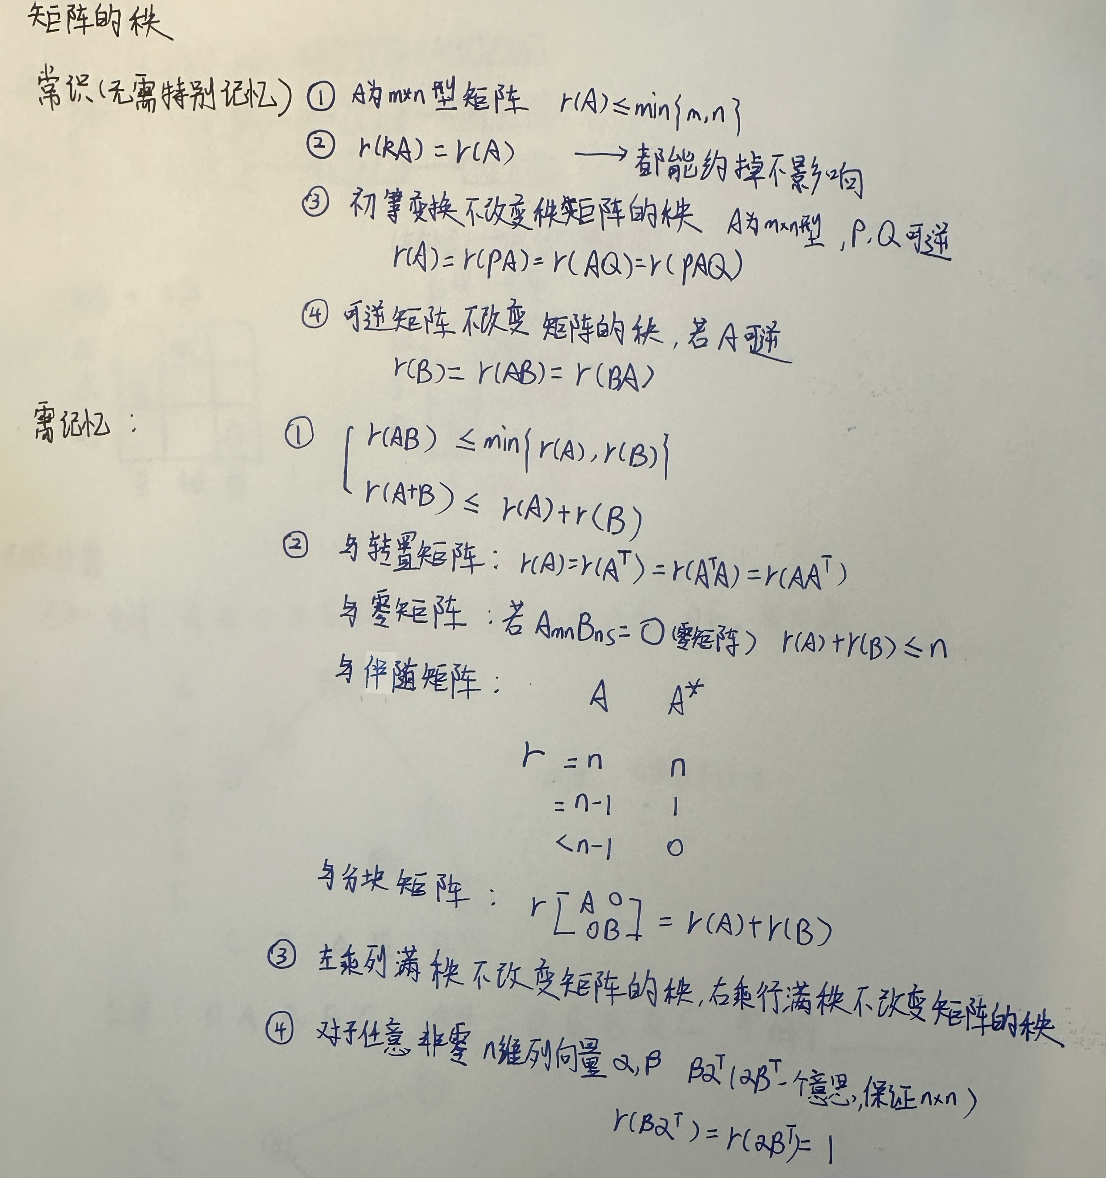 矩阵的秩
常识(无需特别记忆) ① A为m×n型矩阵 r(A)≤min{m,n}
② r(kA)=r(A) ⟶ 都能约掉不影响
③ 初等变换不改变秩矩阵的秩 A为m×n型,P.Q可逆
r(A)=r(PA)=r(AQ)=r(PAQ)
④ 可逆矩阵不改变矩阵的秩,若A可逆
r(B)=r(AB)=r(BA)
需记忆: ① r(AB)≤min{r(A),r(B)}
r(A+B)≤r(A)+r(B)
② 与转置矩阵:r(A)=r(Aᵀ)=r(AᵀA)=r(AAᵀ)
与零矩阵:若AmnBns=O(零矩阵) r(A)+r(B)≤n
与伴随矩阵: A A*
r =n n
=n-1 1
<n-1 0
与分块矩阵: r[A 0
0 B]=r(A)+r(B)
③ 左乘列满秩不改变矩阵的秩,右乘行满秩不改变矩阵的秩
④ 对于任意非零n维列向量α,β βαᵀ(αβᵀ一个意思,保证n×n)
r(βαᵀ)=r(αβᵀ)=1